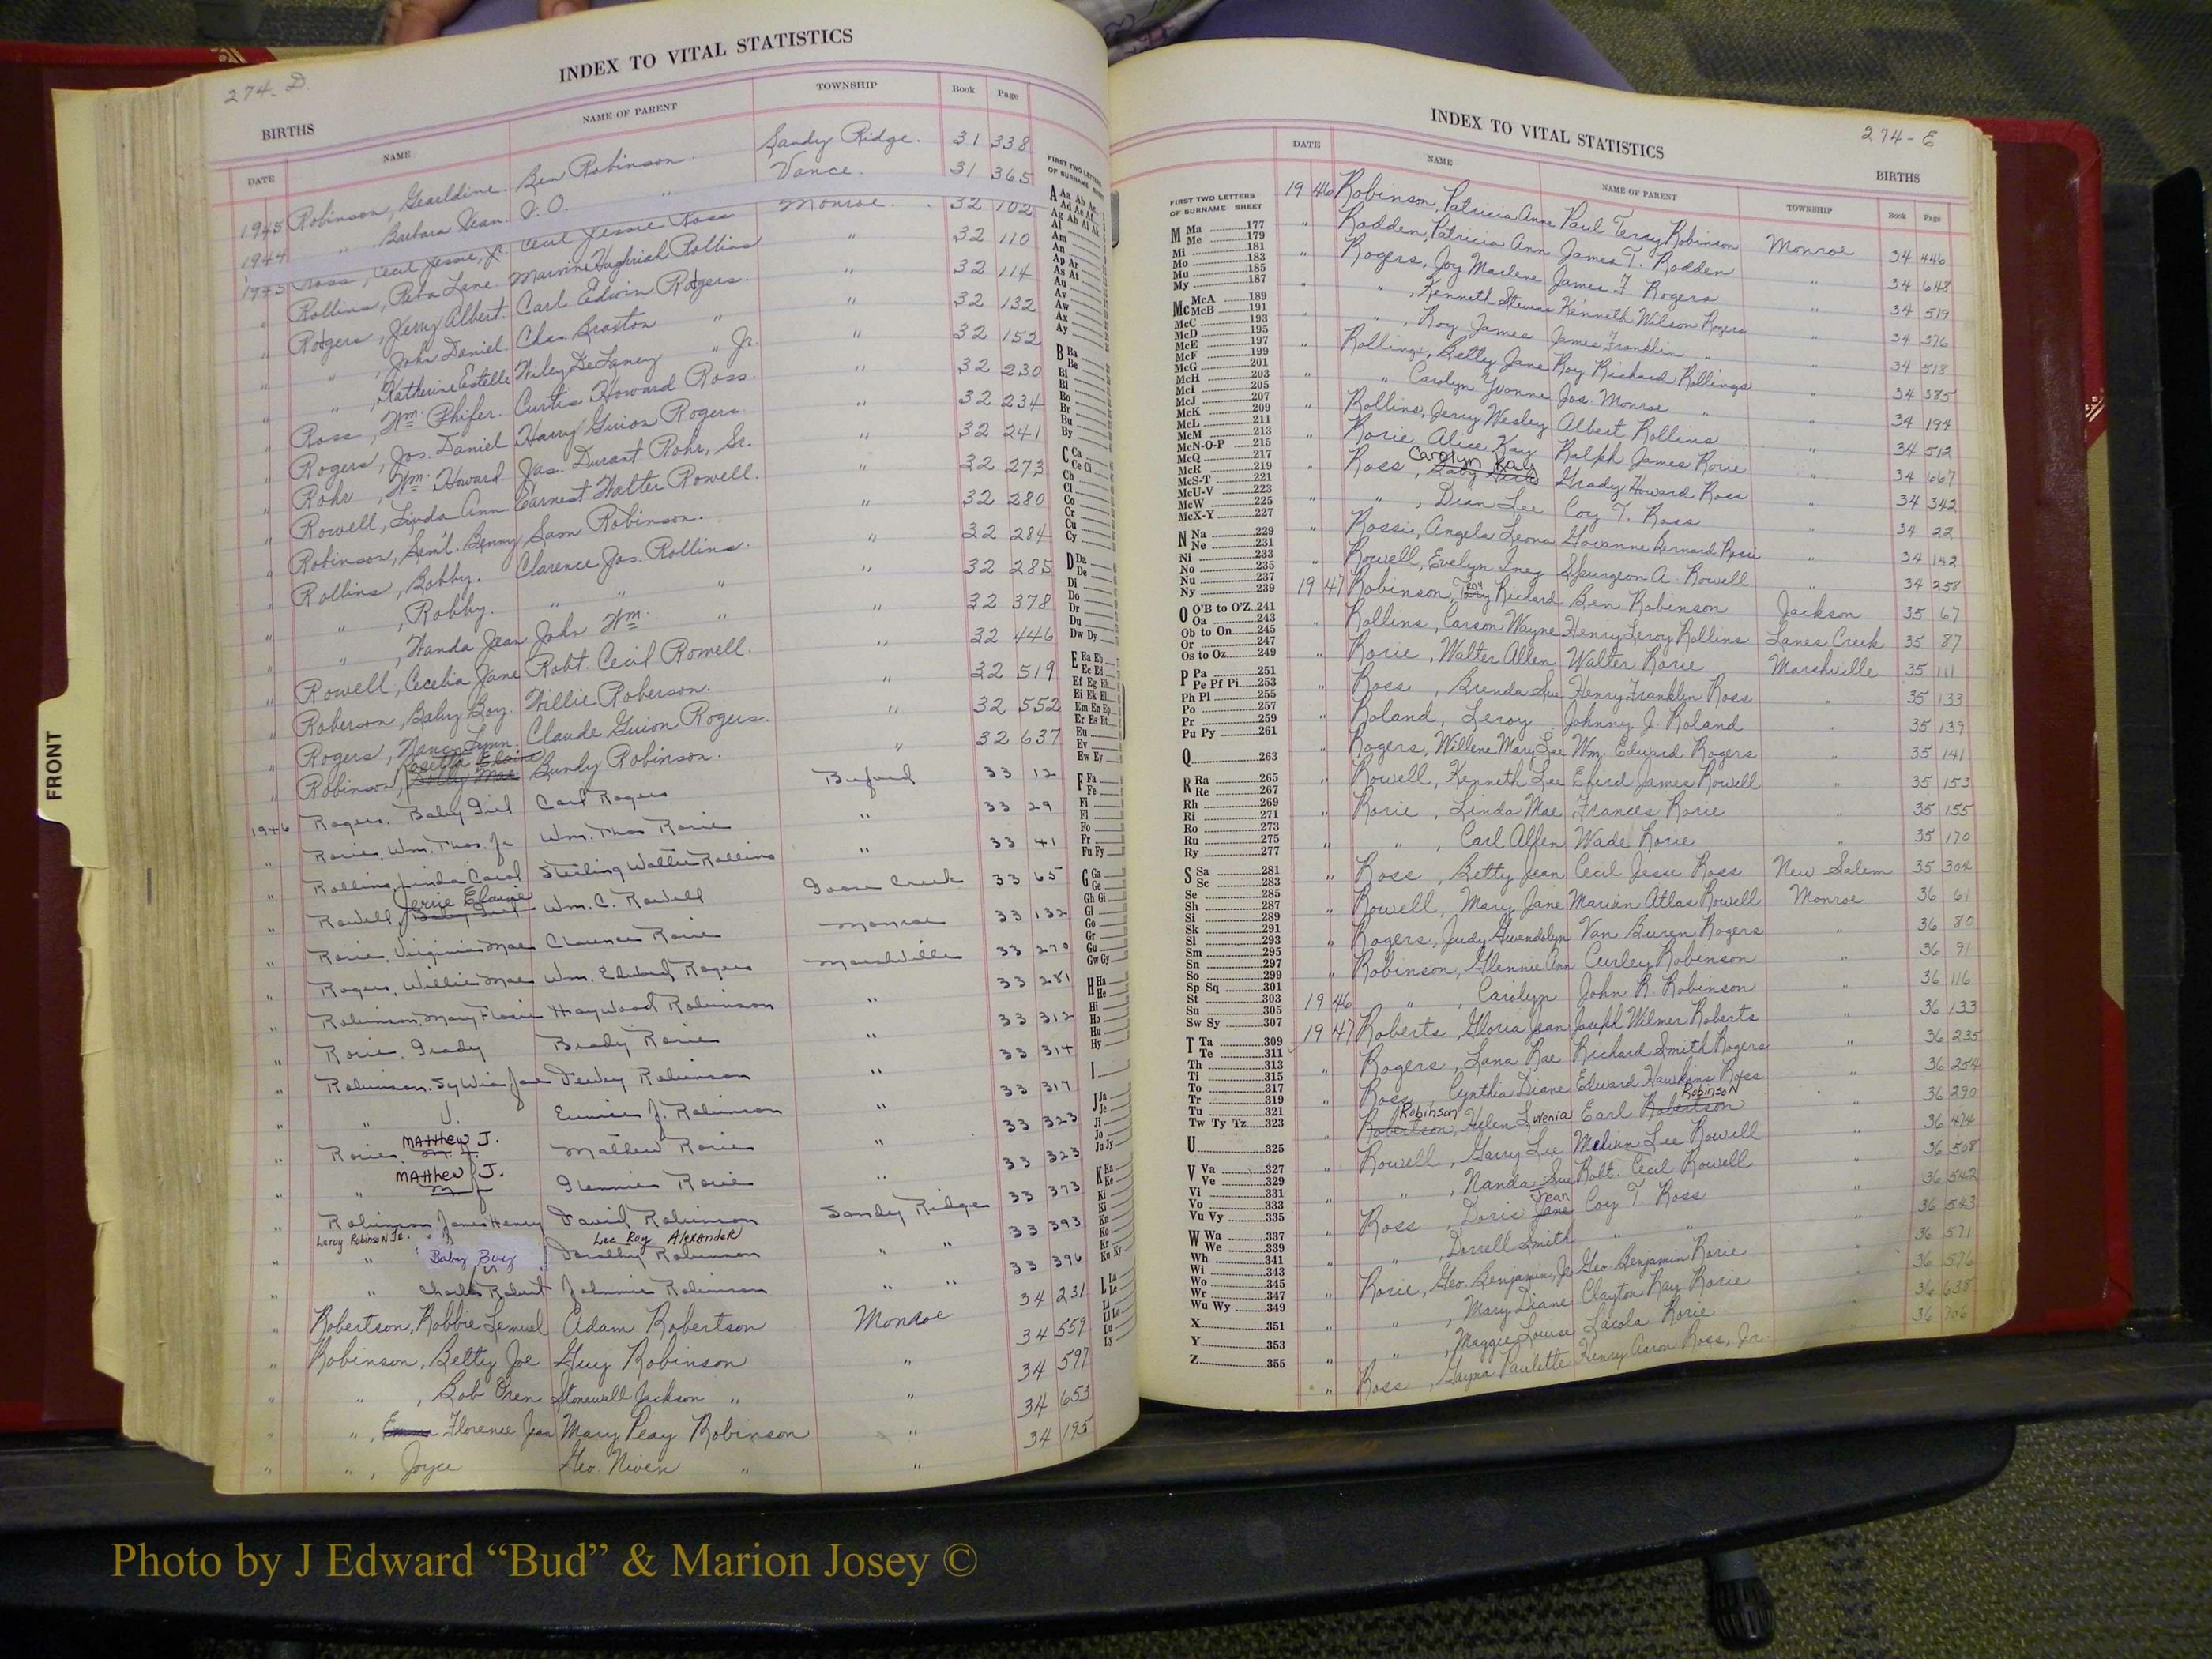 274-D.
INDEX TO VITAL STATISTICS
BIRTHS
DATE NAME NAME OF PARENT TOWNSHIP Book Page
1945 Robinson, Gearldine. Ben Robinson. Sandy Ridge. 31 338
1944 " Barbara Jean. V.O. " Vance. 31 365
1945 Ross, Cecil Jessie, Jr. Cecil Jessie Ross Monroe. 32 102
" Rollins, Reba Lane. Marvine Hughrial Rollins " 32 110
" Rogers, Jerry Albert. Carl Edwin Rogers. " 32 114
" " , John Daniel. Chas. Braxton " " 32 132
" " , Katherine Estelle Wiley DeLaney " Jr. " 32 152
" Ross, Wm. Phifer. Curtis Howard Ross. " 32 230
" Rogers, Jos. Daniel Harry Guion Rogers. " 32 234
" Rohr, Wm. Howard. Jas. Durant Rohr, Sr. " 32 241
" Rowell, Linda Ann. Earnest Walter Rowell. " 32 273
" Robinson, Sam'l. Benny Sam Robinson. " 32 280
" Rollins, Bobby. Clarence Jos. Rollins. " 32 284
" " , Robby. " " " " 32 285
" " , Wanda Jean John Wm. " " 32 378
" Rowell, Cecelia Jane Robt. Cecil Rowell. " 32 446
" Roberson, Baby Boy. Willie Roberson. " 32 519
" Rogers, Nancy Lynn. Claude Guion Rogers. " 32 552
" Robinson, Rosetta Elaine Bundy Robinson. " 32 637
1946 Rogers, Baby Girl Carl Rogers Buford 33 12
" Rorie, Wm. Thos. Jr Wm. Thos Rorie " 33 29
" Rollins, Linda Carol Sterling Walter Rollins " 33 41
" Rowell, Jerrie Elaine Baby Girl Wm. C. Rowell Goose Creek 33 65
" Rorie, Virginia Mae Clarence Rorie Monroe 33 132
" Rogers, Willie Mae Wm. Edward Rogers Marshville 33 270
" Robinson, Mary Flossie Haywood Robinson " 33 281
" Rorie, Grady Brady Rorie " 33 312
" Robinson, Sylvia Jane Dewey Robinson " 33 314
" " J. Eunice J. Robinson " 33 317
" Rorie, MATTHEW J. Mathew Rorie " 33 323
" " MATTHEW J. Glennie Rorie " 33 323
" Robinson, James Henry David Robinson Sandy Ridge 33 373
Leroy Robinson Jr. Lee Roy Alexander
" " Baby Boy Dorothy Robinson " " 33 393
" " Charles Robert Johnnie Robinson " " 33 396
" Robertson, Robbie Lemuel Adam Robertson Monroe 34 231
" Robinson, Betty Joe Guy Robinson " 34 559
" " , Bob Oren Stonewall Jackson " " 34 597
" " , Emma Florence Jean Mary Peay Robinson " 34 653
" " , Joyce Geo. Niven " " 34 195
FRONT
FIRST TWO LETTERS
OF SURNAME
A Aa Ab Ac
Ad Ae Af
Ag Ah Ai Ak
Al
Am
An
Ap Ar
As At
Au
Av
Aw
Ax
Ay
B Ba
Be
Bi
Bl
Bo
Br
Bu
By
C Ca
Ce Ci
Ch
Cl
Co
Cr
Cu
Cy
D Da
De
Di
Do
Dr
Du
Dw Dy
E Ea Eb
Ec Ed
Ef Eg Eh
Ei Ek El
Em En Ep
Er Es Et
Eu
Ev
Ew Ey
F Fa
Fe
Fi
Fl
Fo
Fr
Fu Fy
G Ga
Ge
Gh Gi
Gl
Go
Gr
Gu
Gw Gy
H Ha
He
Hi
Ho
Hu
Hy
I
J Ja
Je
Ji
Jo
Ju Jy
K Ka
Ke
Ki
Kl
Kn
Ko
Kr
Ku Ky
L La
Le
Li
Ll Lo
Lu
Ly
INDEX TO VITAL STATISTICS
274-E
BIRTHS
FIRST TWO LETTERS
OF SURNAME SHEET
M Ma 177
Me 179
Mi 181
Mo 183
Mu 185
My 187
Mc McA 189
McB 191
McC 193
McD 195
McE 197
McF 199
McG 201
McH 203
McI 205
McJ 207
McK 209
McL 211
McM 213
McN-O-P 215
McQ 217
McR 219
McS-T 221
McU-V 223
McW 225
McX-Y 227
N Na 229
Ne 231
Ni 233
No 235
Nu 237
Ny 239
O O'B to O'Z 241
Oa 243
Ob to On 245
Or 247
Os to Oz 249
P Pa 251
Pe Pf Pi 253
Ph Pl 255
Po 257
Pr 259
Pu Py 261
Q 263
R Ra 265
Re 267
Rh 269
Ri 271
Ro 273
Ru 275
Ry 277
S Sa 281
Sc 283
Se 285
Sh 287
Si 289
Sk 291
Sl 293
Sm 295
Sn 297
So 299
Sp Sq 301
St 303
Su 305
Sw Sy 307
T Ta 309
Te 311
Th 313
Ti 315
To 317
Tr 319
Tu 321
Tw Ty Tz 323
U 325
V Va 327
Ve 329
Vi 331
Vo 333
Vu Vy 335
W Wa 337
We 339
Wh 341
Wi 343
Wo 345
Wr 347
Wu Wy 349
X 351
Y 353
Z 355
DATE NAME NAME OF PARENT TOWNSHIP Book Page
1946 Robinson, Patricia Anne Paul Terry Robinson Monroe 34 446
" Rodden, Patricia Ann James T. Rodden " 34 648
" Rogers, Joy Marlene James F. Rogers " 34 519
" " , Kenneth Stevens Kenneth Wilson Rogers " 34 376
" " , Roy James James Franklin " " 34 518
" Rollings, Betty Jane Roy Richard Rollings " 34 385
" " Carolyn Yvonne Jas. Monroe " " 34 194
" Rollins, Jerry Wesley Albert Rollins " 34 512
" Rorie Alice Kay Ralph James Rorie " 34 667
" Ross, Carolyn Kay Baby Girl Grady Howard Ross " 34 342
" " , Dean Lee Coy T. Ross " 34 22
" Rossi, Angela Leona Giovanne Bernard Rossi " 34 142
" Rowell, Evelyn Inez Spurgeon A. Rowell " 34 258
1947 Robinson, Roy Richard Ben Robinson Jackson 35 67
" Rollins, Carson Wayne Henry Leroy Rollins Lanes Creek 35 87
" Rorie, Walter Allen Walter Rorie Marshville 35 111
" Ross, Brenda Sue Henry Franklin Ross " 35 133
" Roland, Leroy Johnny J. Roland " 35 139
" Rogers, Willene Mary Lee Wm. Edward Rogers " 35 141
" Rowell, Kenneth Lee Eferd James Rowell " 35 153
" Rorie, Linda Mae Frances Rorie " 35 155
" " , Carl Alfen Wade Rorie " 35 170
" Ross, Betty Jean Cecil Jesse Ross New Salem 35 302
" Rowell, Mary Jane Marvin Atlas Rowell Monroe 36 61
" Rogers, Judy Gwendolyn Van Buren Rogers " 36 80
" Robinson, Glennie Ann Curley Robinson " 36 91
1946 " , Carolyn John R. Robinson " 36 116
1947 Roberts, Gloria Jean Joseph Wilmer Roberts " 36 133
" Rogers, Lana Rae Richard Smith Rogers " 36 235
" Ross, Cynthia Diane Edward Hawkins Ross " 36 254
" Robinson Robertson, Helen Luvenia Earl Robertson Robinson " 36 290
" Rowell, Garry Lee Melvin Lee Rowell " 36 474
" " , Nanda Sue Robt. Cecil Rowell " 36 508
" Ross, Doris Jane Jean Coy T. Ross " 36 542
" " , Dorrell Smith " " 36 543
" Rorie, Geo. Benjamin, Jr Geo. Benjamin Rorie " 36 571
" " , Mary Diane Clayton Ray Rorie " 36 576
" " , Maggie Louise Lacola Rorie " 36 638
" Ross, Gayna Paulette Henry Aaron Ross, Jr. " 36 706
Photo by J Edward “Bud” & Marion Josey ©